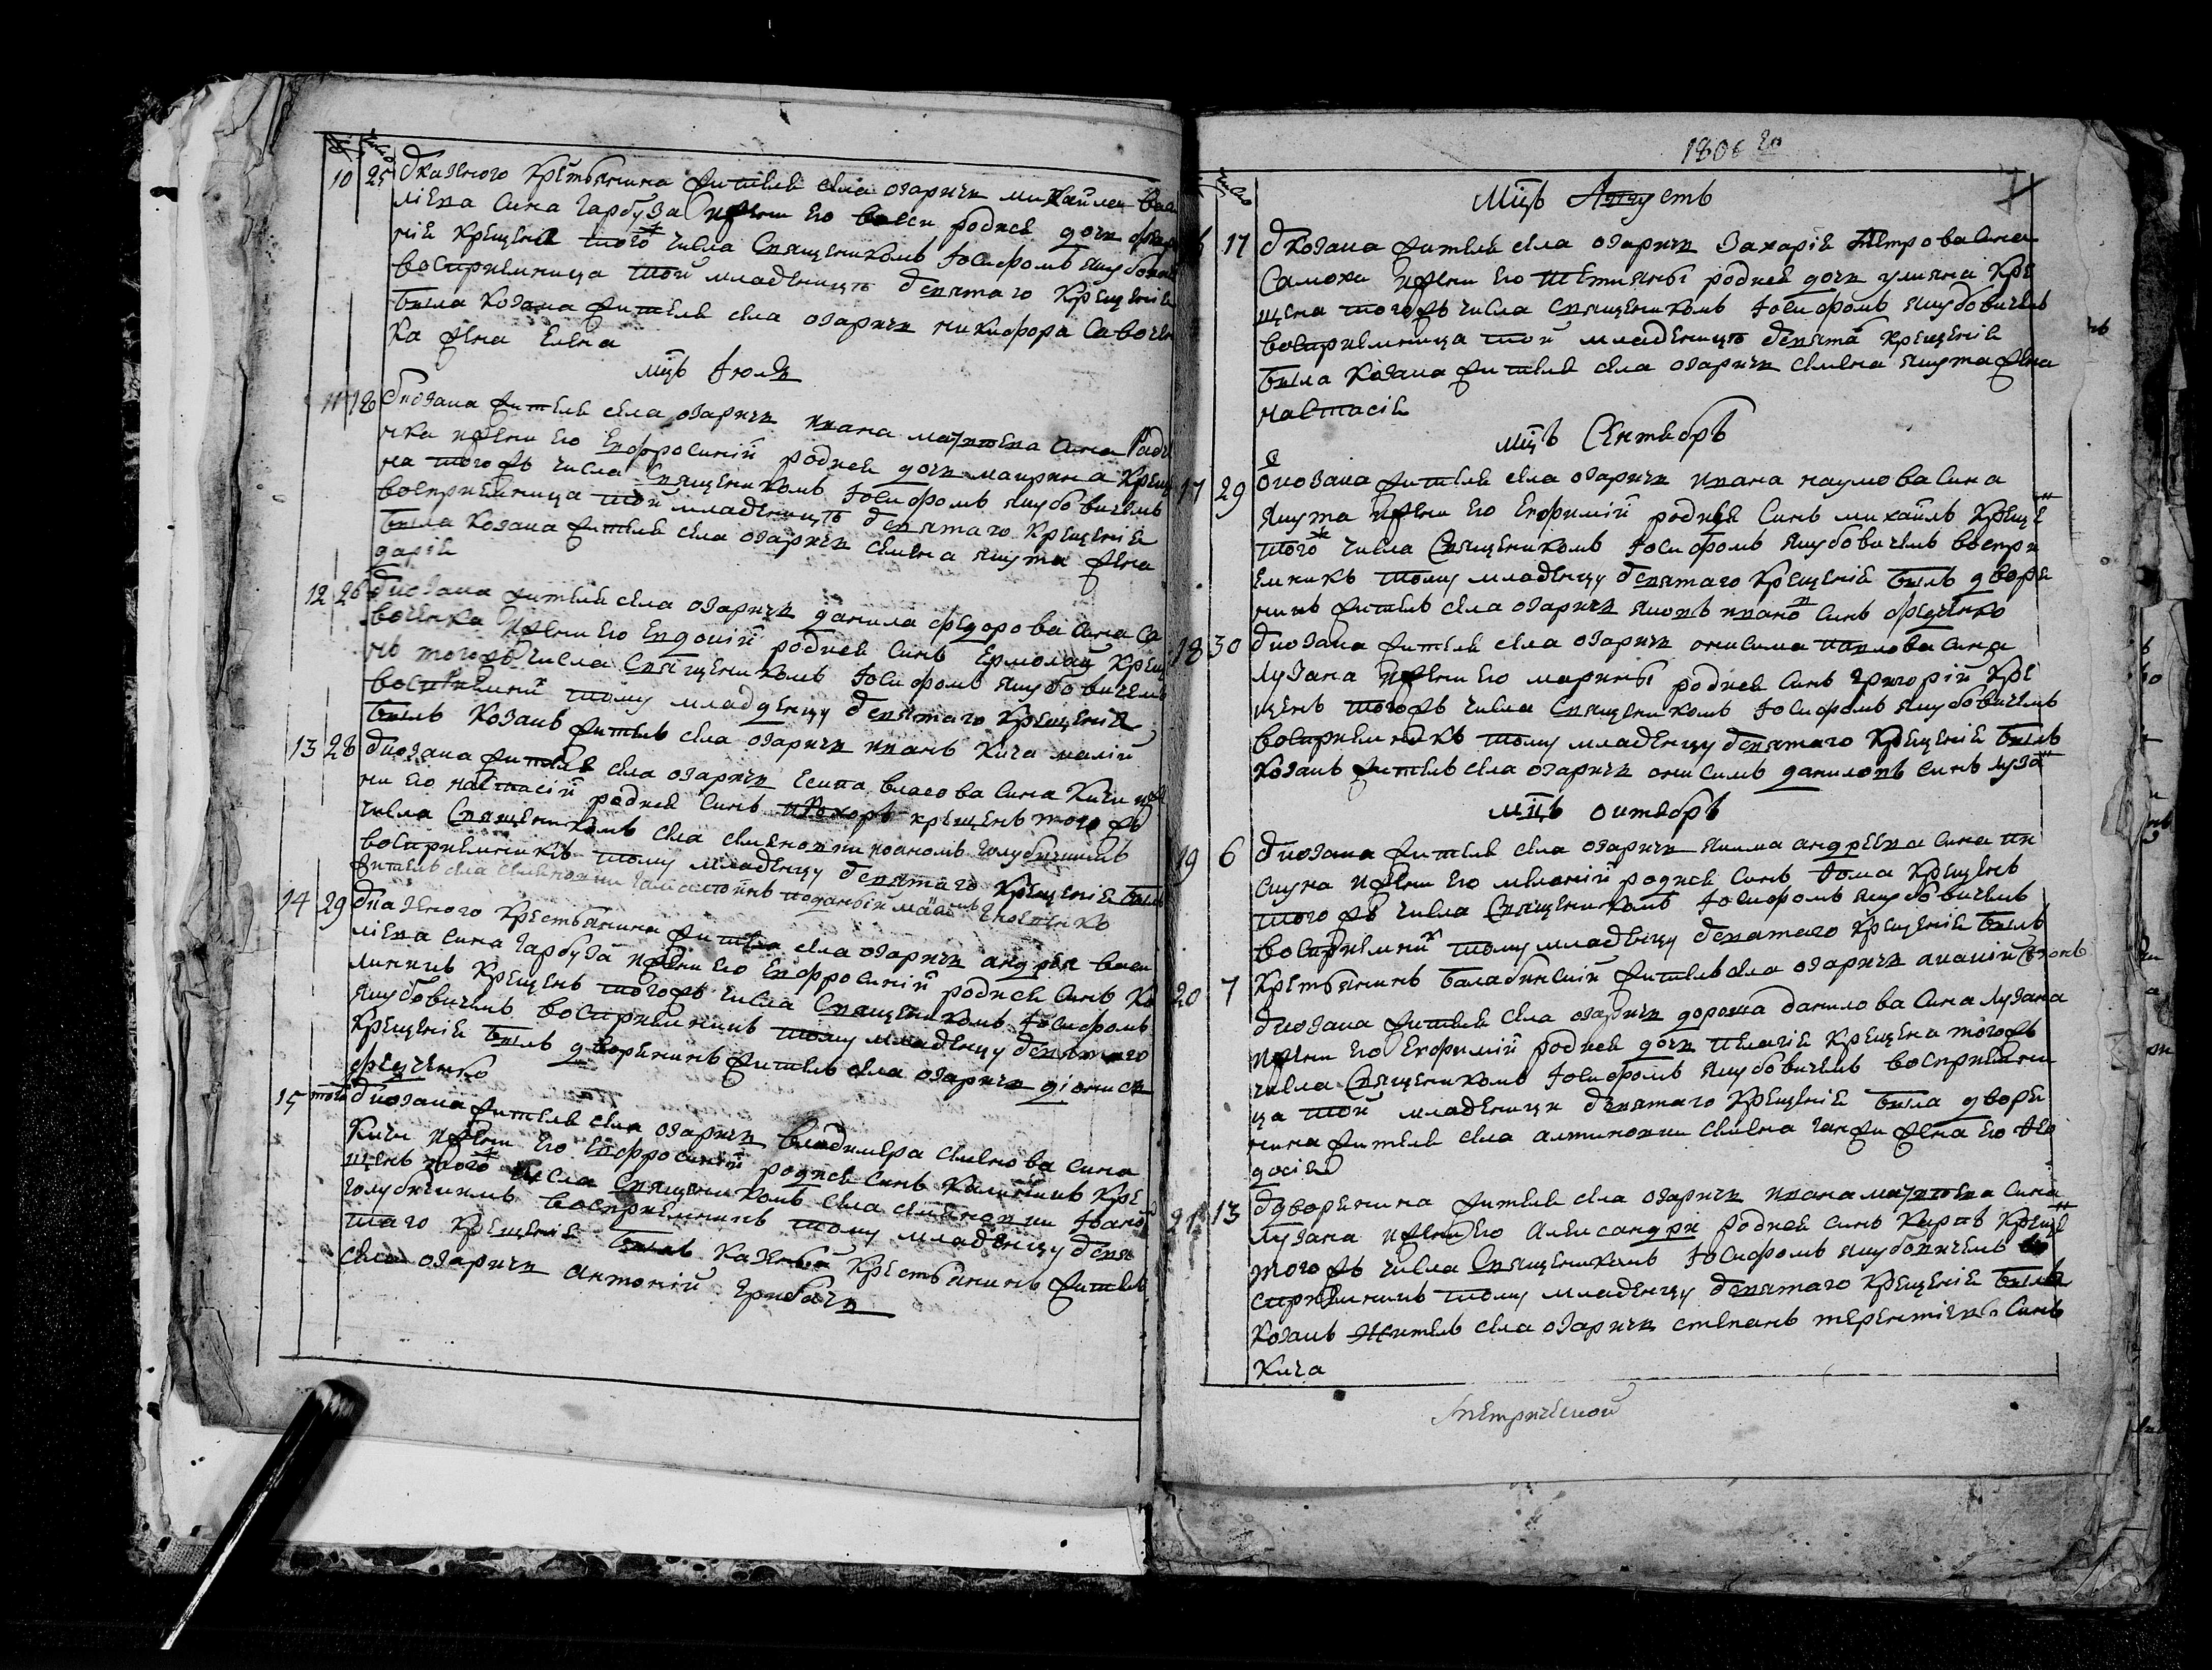 10 25 Ѹ казеного крестьянина жителя села озаричъ михайлы васи
лиева сина гарбуза и жени его родися дочь
ния крещена того ж числа священикомъ Іосифомъ якубови
восприемница той младеници святаго крещения
была козака жителя села озаричъ никифора савоче
ка жена Елена
мцъ Іюль
11 18 Ѹ козака жителя села озаричъ ивана матвѣева сина
чка и жени его Евфросинии родися дочь марина креще
на тогожъ числа священикомъ Іосифомъ якубовичемъ
восприемница той младеници святаго крещения
была козака жителя села озаричъ семена якута жена
дария
12 26 Ѹ козака жителя села озаричъ данила федорова сина са
воченка и жени его Евдокии родися синъ Ермолай креще
нъ тогожъ числа священикомъ Іосифомъ якубовичемъ
восприемник тому младенцу святаго крещения
былъ козакъ житель села озаричъ иванъ кича малий
13 28 Ѹ козака жителя села озаричъ Есипа власова сина кичи и же
ни его настасии родися синъ прохоръ крещенъ того жъ
числа священикомъ села семеновки іоаномъ голубичимъ
восприемникъ тому младенцу святаго крещения былъ
житель села семеновки
14 29 Ѹ казеного крестьянина жителя села озаричъ андрея васи
лиева сина гарбуза и жени его Евфросинии родися синъ ка
линикъ крещенъ тогожъ числа священикомъ Іосифомъ
якубовичемъ восприемникъ тому младенцу святаго
крещения былъ дворянинъ житель села озаричъ дионисъ
федченко
15 того Ѹ козака жителя села озаричъ владимера семенова сина
кичи и жени его Евфросинии родися синъ калиникъ кре
щенъ того ж числа священикомъ села семеновки Іоано
голубичимъ восприемникъ тому младенцу свя
таго крещения былъ казеный крестьянинъ житель
села озаричъ антоний грибачъ
1806 го
Мцъ Августъ
17 Ѹ козака жителя села озаричъ захария петрова сина
самохи и жени его татияны родися дочь улияна кре
щена тогожъ числа священикомъ Іосифомъ якубовичемъ
восприемница той младеници святаго крещения
была козака жителя села озаричъ семена якута жена
настасия
мцъ Сентябръ
17 29 Ѹ козака жителя села озаричъ ивана наумова сина
якута и жени его Евфимии родися синъ михайлъ креще
того ж числа священикомъ Іосифомъ якубовичемъ воспри
емникъ тому младенцу святаго крещения былъ дворя
нинъ житель села озаричъ яковъ иванов синъ федченко
18 30 Ѹ козака жителя села озаричъ онисима павлова сина
лузана и жени его марины родися синъ григорий кре
щенъ тогожъ числа священикомъ Іосифомъ якубовичемъ
восприемникъ тому младенцу святаго крещения былъ
козакъ житель села озаричъ онисимъ даниловъ синъ луза
мцъ октябръ
19 6 Ѹ козака жителя села озаричъ якима андрѣева сина
и жени его мелании родися синъ Фома крещенъ
того жъ числа священикомъ Іосифомъ якубовичемъ
восприемник тому младенцу святаго крещения былъ
крестьянинъ балабинский житель села озаричъ
20 7 Ѹ козака жителя села озаричъ дороша данилова сина лузана
и жени его Евфимии родися дочь пелагия крещена тогожъ
числа священикомъ Іосифомъ якубовичемъ восприемни
ца той младеници святаго крещения была дворя
нина жителя села алтиновки семена ганжи жена его Фео
досия
21 13 Ѹ дворянина жителя села озаричъ ивана матвѣева сина
лузана и жени его александри родися синъ карпъ креще
тогожъ числа священикомъ Іосифомъ якубовичемъ во
сприемникъ тому младенцу святаго крещения былъ
козакъ житель села озаричъ степанъ терентиевъ синъ
кича